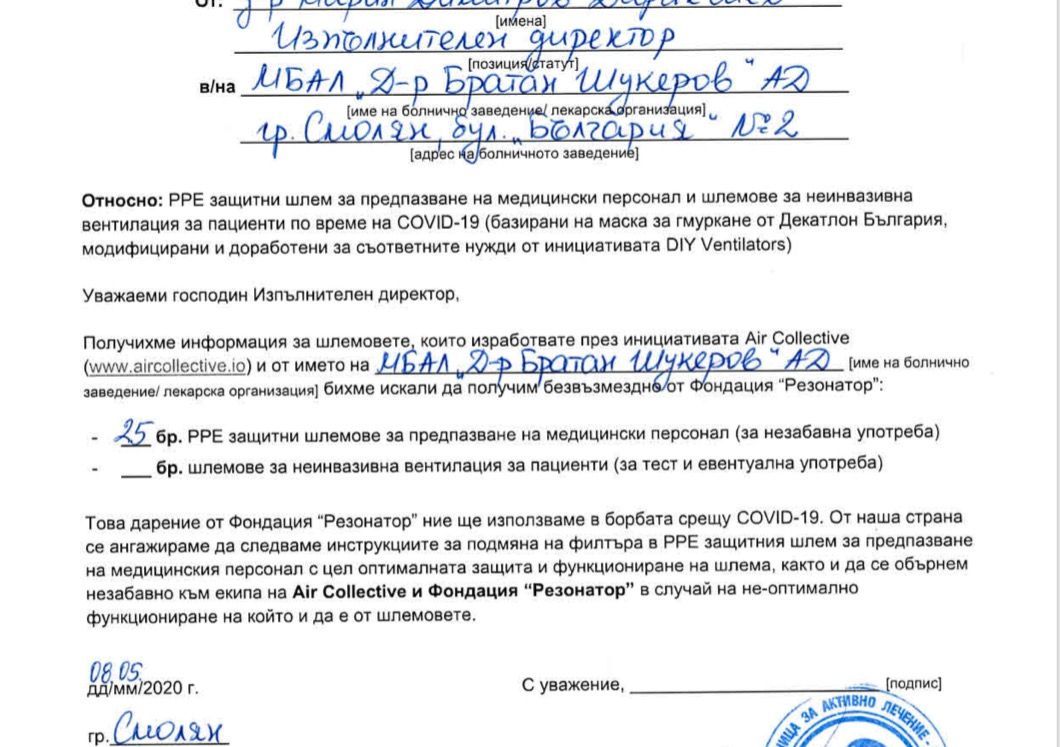 От: Д-р Мария Димитров
[имена]
Изпълнителен директор
[позиция/статут]
в/на МБАЛ „Д-р Братан Шукеров“ АД
[име на болнично заведение/ лекарска организация]
гр. Смолян, бул. „България“ №2
[адрес на болничното заведение]
Относно: PPE защитни шлем за предпазване на медицински персонал и шлемове за неинвазивна
вентилация за пациенти по време на COVID-19 (базирани на маска за гмуркане от Декатлон България,
модифицирани и доработени за съответните нужди от инициативата DIY Ventilators)
Уважаеми господин Изпълнителен директор,
Получихме информация за шлемовете, които изработвате през инициативата Air Collective
(www.aircollective.io) и от името на МБАЛ „Д-р Братан Шукеров“ АД [име на болнично
заведение/ лекарска организация] бихме искали да получим безвъзмездно от Фондация “Резонатор”:
- 25 бр. PPE защитни шлемове за предпазване на медицински персонал (за незабавна употреба)
- ___ бр. шлемове за неинвазивна вентилация за пациенти (за тест и евентуална употреба)
Това дарение от Фондация “Резонатор” ние ще използваме в борбата срещу COVID-19. От наша страна
се ангажираме да следваме инструкциите за подмяна на филтъра в PPE защитния шлем за предпазване
на медицинския персонал с цел оптималната защита и функциониране на шлема, както и да се обърнем
незабавно към екипа на Air Collective и Фондация “Резонатор” в случай на не-оптимално
функциониране на който и да е от шлемовете.
08.05.
дд/мм/2020 г.
С уважение, ___ [подпис]
гр. Смолян
ЗА АКТИВНО ЛЕЧЕНИЕ -